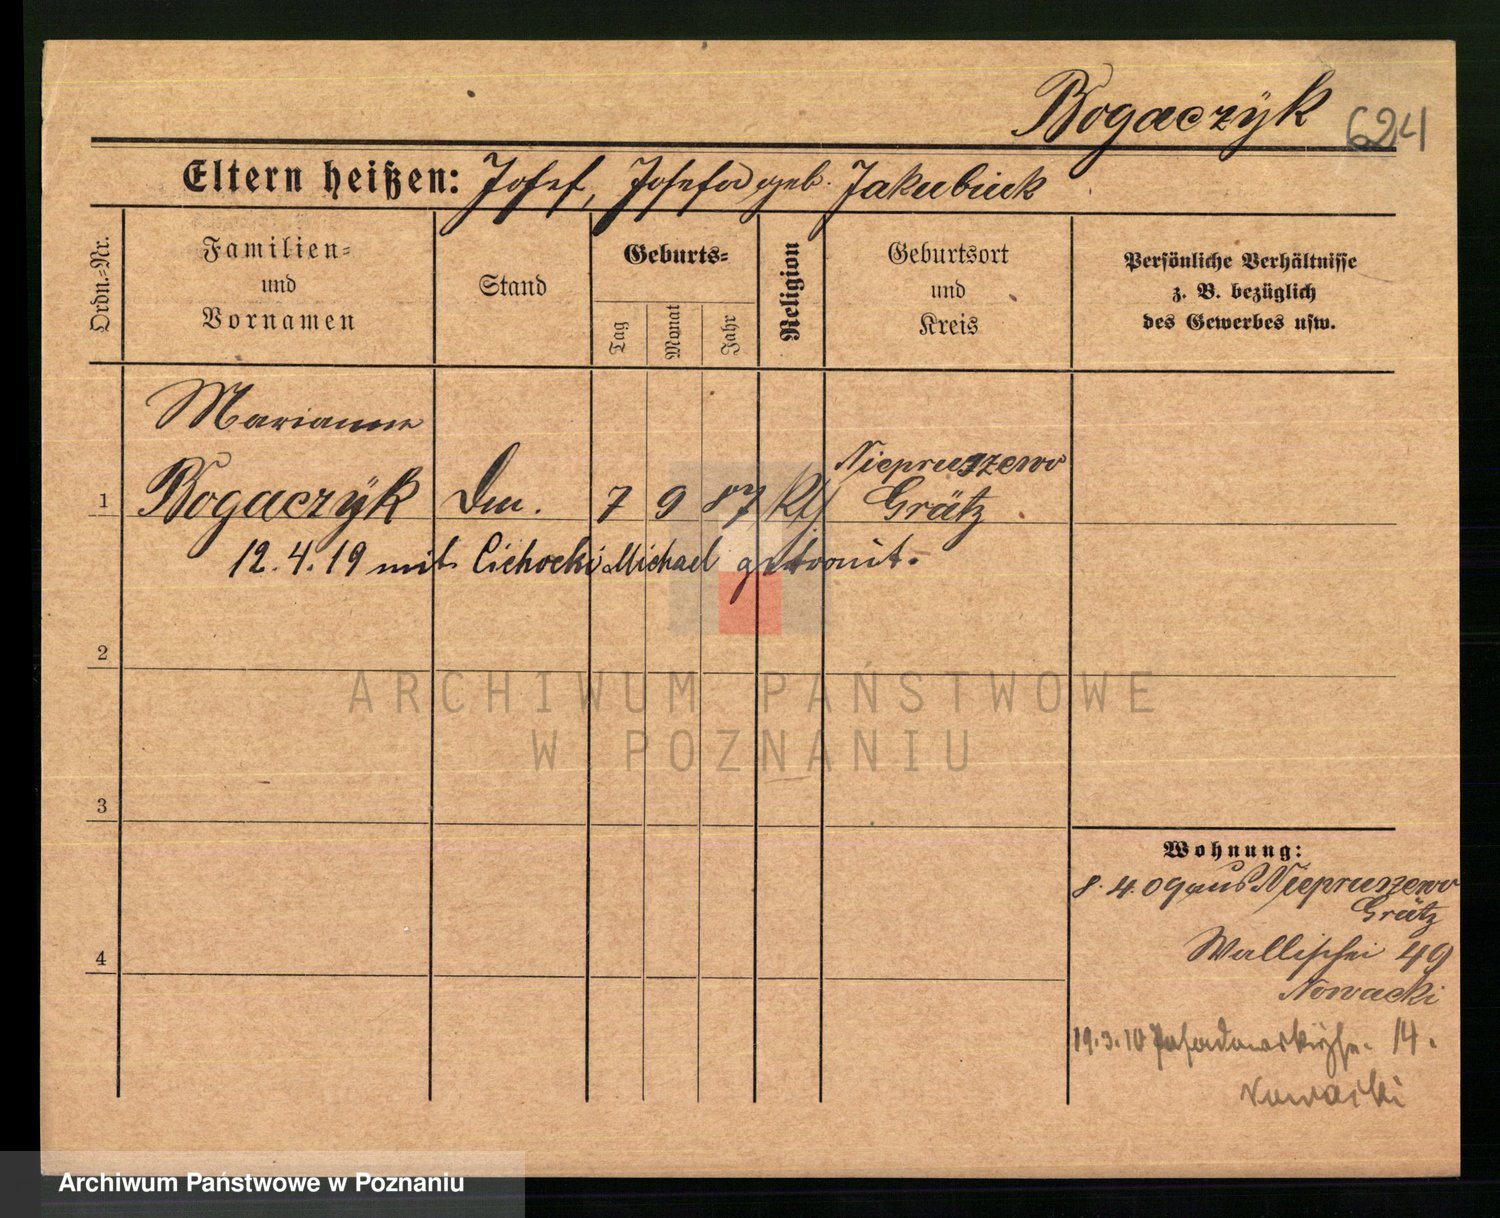 Bogaczÿk 624
Eltern heißen: Josef, Josefa geb. Jakubiak
Ordn.=Nr.
Familien=
und
Vornamen
Stand
Geburts=
Tag
Monat
Jahr
Religion
Geburtsort
und
Kreis
Persönliche Verhältnisse
z. B. bezüglich
des Gewerbes usw.
Marianna
Niepruszewo
1 Bogaczÿk 7 9 87 Kth Grätz
12.4.19 mit Cichocki Michael getraut.
2
3
4
Wohnung:
8.4.09 aus Niepruszewo
Grätz
Wallischei 49
Nowacki
19.3.10 14.
Nowacki
ARCHIWUM PAŃSTWOWE
W POZNANIU
Archiwum Państwowe w Poznaniu